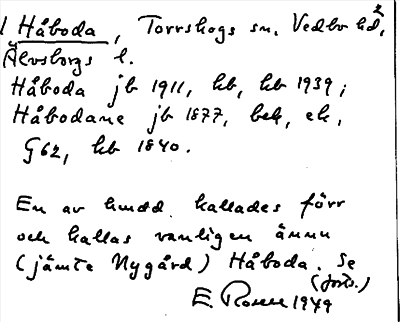 1 Håboda, Torrskogs sn. Vedbo hd,
Älvsborgs l.
Håboda jb 1911, kb, kb 1939;
Håbodane jb 1877, bek, ek,
G62, kb 1840.
En av hmdd. kallades förr
och kallas vanligen ännu
(jämte Nygård) Håboda. Se
(forts.)
E. Rosell 1949